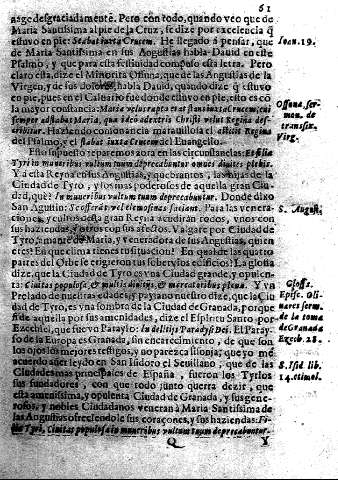 61
arse desgraciadamente. Pero con todo, quando veo que de
Maria Santissima al pie de la Cruz, se dize por excelencia q̃
estuvo en pie: Stabat iuxta Crucem. He llegado à pensar, que
de Maria Santissima en sus Angustias habla David en este
Psalmo, y que para esta festividad compuso esta letra. Pero
claro esta, dize el Minorita Osuna, que de las Angustias de la
Virgen, y de sus dolores, habla David, quando dize q̃ estuvo
en pie, pues en el Calbario fue donde estuvo en pie, y esto es cõ
la mayor constancia: Maria vele
semper astabat Maria, que ideo adextris Christi velut Regina des-
cribitur. Haziendo consonancia maravillosa el astitit Regina
del Psalmo, y el stabat iuxta Crucem del Euangelio.
Esto supuesto reparemos aora en las circunstancias: Et filiæ
Tyri in muneribus vultum tuum deprecabuntur omnes divites plebis.
Y a esta Reyna en sus Angustias, y quebrantos, las hijas de la
Ciudad de Tyro, y los mas poderosos de aquella gran Ciu-
dad, què? In muneribus vultum tuum deprecabuntur. Donde dixo
San Agustin: Se offerã vel elemosinas facient. Para las venera-
ciones, y cultos desta gran Reyna acudirán todos, vnos con
sus haziendas, y otros con sus afectos. Valgame por Ciudad de
Tyro, amante de Maria, y veneradora de sus Angustias, quien
eres? En que clima tienes tu situacion? En qual de las quatro
partes del Orbe se erigieron tus sobervios edificios? La glosa
dize, que la Ciudad de Tyro es vna Ciudad grande, y opulen-
ta: Civitas populosa, & multis divitijs, & mercatoribus plena. Y vn
Prelado de nuestras edades, y payano nuestro dize, que la Ciu-
dad de Tyro, es vna sombra de la Ciudad de Granada, porque
fue de aquella por sus amenidades, dize el Espiritu Santo por
Ezechiel, que fue vn Parayso: In delitijs Paradysi Dei. El Paray-
so de la Europa es Granada, sin encarecimiento, de que son
los ojos los mejores testigos, y no parezca lisonja; que yo me
acuerdo aver leydo en San Isidoro el Sevillano, que de las
Ciudades mas principales de España, fueron los Tyrios
sus fundadores, con que todo junto querra dezir, que
esta amenissima, y opulenta Ciudad de Granada, y sus gene-
rosos, y nobles Ciudadanos veneran à Maria Santissima de
las Angustias ofreciendole sus coraçones, y sus haziendas: Fi-
liæ Tyri, Civitas populosa in muneribus vultum tuum deprecabuntur.
Q
Y
Ioan. 19.
Osuna ser-
mon. de
transfix.
Virg.
S. August.
Gloss.
Episc. Oli-
nares serm.
de la toma
de Granada
Ezech. 28.
S. Isid lib.
14. etimol.